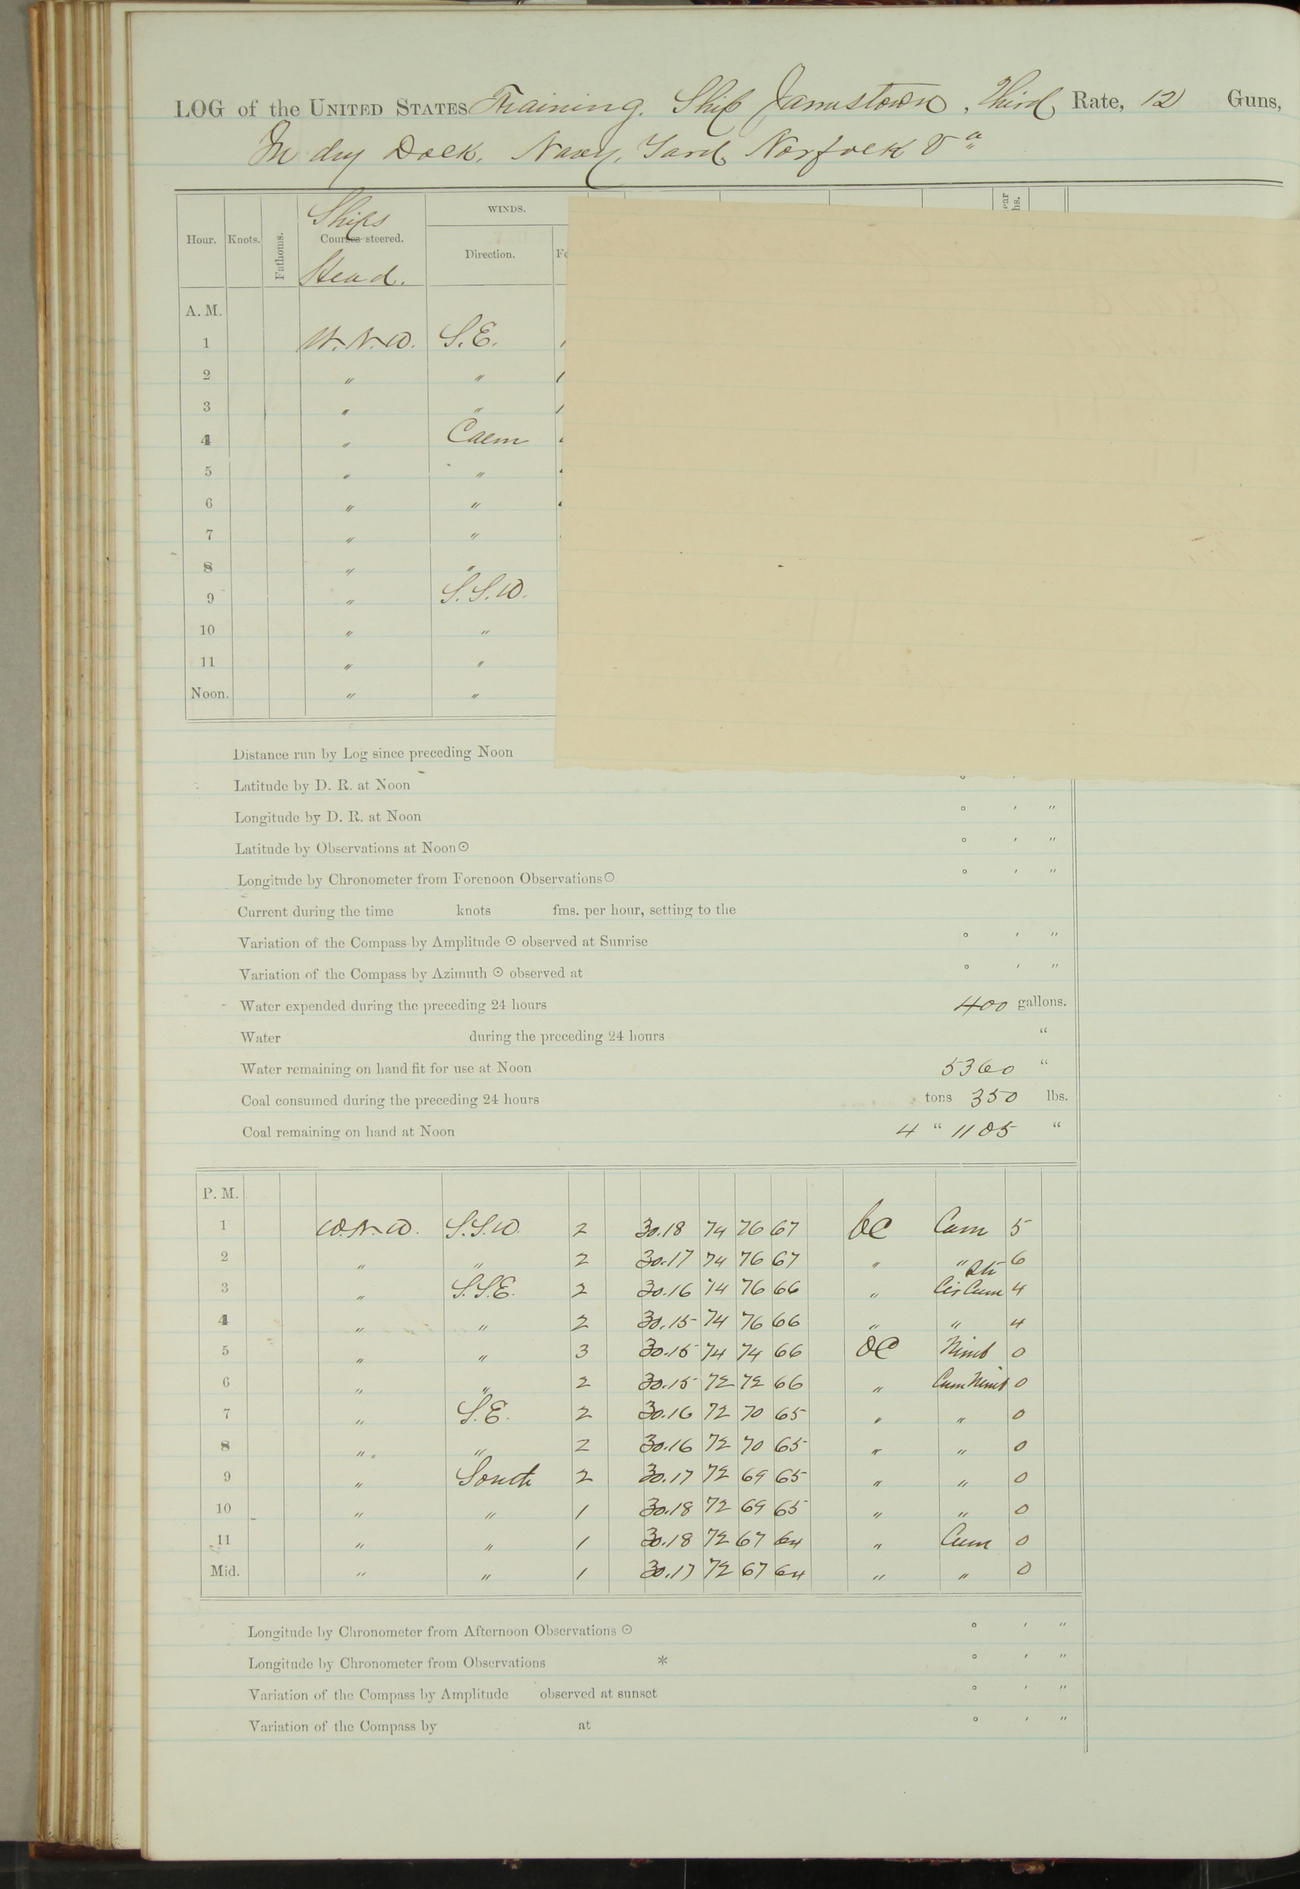 LOG of the UNITED STATES Training Ship Jamestown, Third Rate, 12 Guns,
In dry Dock, Navy Yard Norfolk Va
Hour. Knots. Fathoms. Ships Courses steered. Head. WINDS. Direction.
A. M.
1 W.N.W. S.E. 1
2 " " 1
3 " " 1
4 " Calm
5 " "
6 " "
7 " "
8 " "
9 " S.S.W.
10 " "
11 " "
Noon. " "
Distance run by Log since preceding Noon
Latitude by D. R. at Noon ° ' 
Longitude by D. R. at Noon ° ' "
Latitude by Observations at Noon ☉ ° ' "
Longitude by Chronometer from Forenoon Observations ☉ ° ' "
Current during the time knots fms. per hour, setting to the
Variation of the Compass by Amplitude ☉ observed at Sunrise ° ' "
Variation of the Compass by Azimuth ☉ observed at ° ' "
Water expended during the preceding 24 hours 400 gallons.
Water during the preceding 24 hours "
Water remaining on hand fit for use at Noon 5360 "
Coal consumed during the preceding 24 hours tons 350 lbs.
Coal remaining on hand at Noon 4 " 1105 "
P. M.
1 W.N.W. S.S.W. 2 30.18 74 76 67 bc Cum 5
2 " " 2 30.17 74 76 67 " " 6
3 " S.S.E. 2 30.16 74 76 66 " Cir Cum 4
4 " " 2 30.15 74 76 66 " " 4
5 " " 3 30.15 74 74 66 oc Nimb 0
6 " " 2 30.15 72 72 66 " Cum Nimb 0
7 " S.E. 2 30.16 72 70 65 " " 0
8 " " 2 30.16 72 70 65 " " 0
9 " South 2 30.17 72 69 65 " " 0
10 " " 1 30.18 72 69 65 " " 0
11 " " 1 30.18 72 67 64 " Cum 0
Mid. " " 1 30.17 72 67 64 " " 0
Longitude by Chronometer from Afternoon Observations ☉ ° ' "
Longitude by Chronometer from Observations * ° ' "
Variation of the Compass by Amplitude observed at sunset ° ' "
Variation of the Compass by at ° ' "